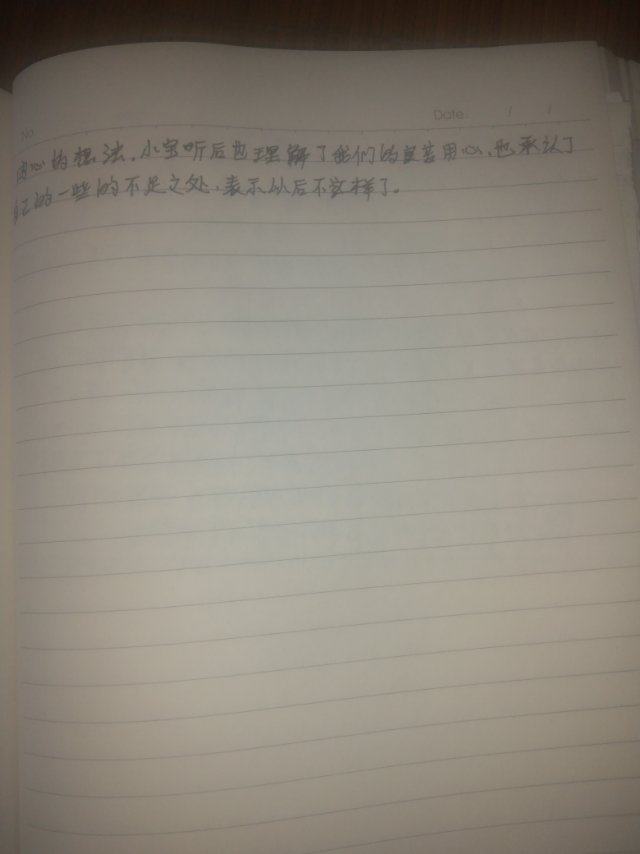 No
Date: / /
内心的想法,小宝听后也理解了我们的良苦用心,也承认了
自己的一些的不足之处,表示从后不这样了。